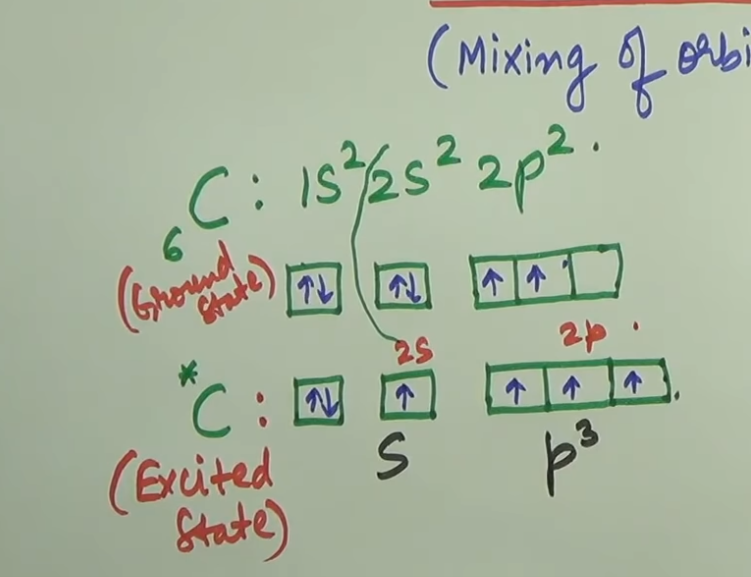 (Mixing of
6C: 1s² 2s² 2p².
(Ground State) ↑↓ ↑↓ ↑ ↑
2s 2p
*C: ↑↓ ↑ ↑ ↑ ↑
(Excited State) S p³